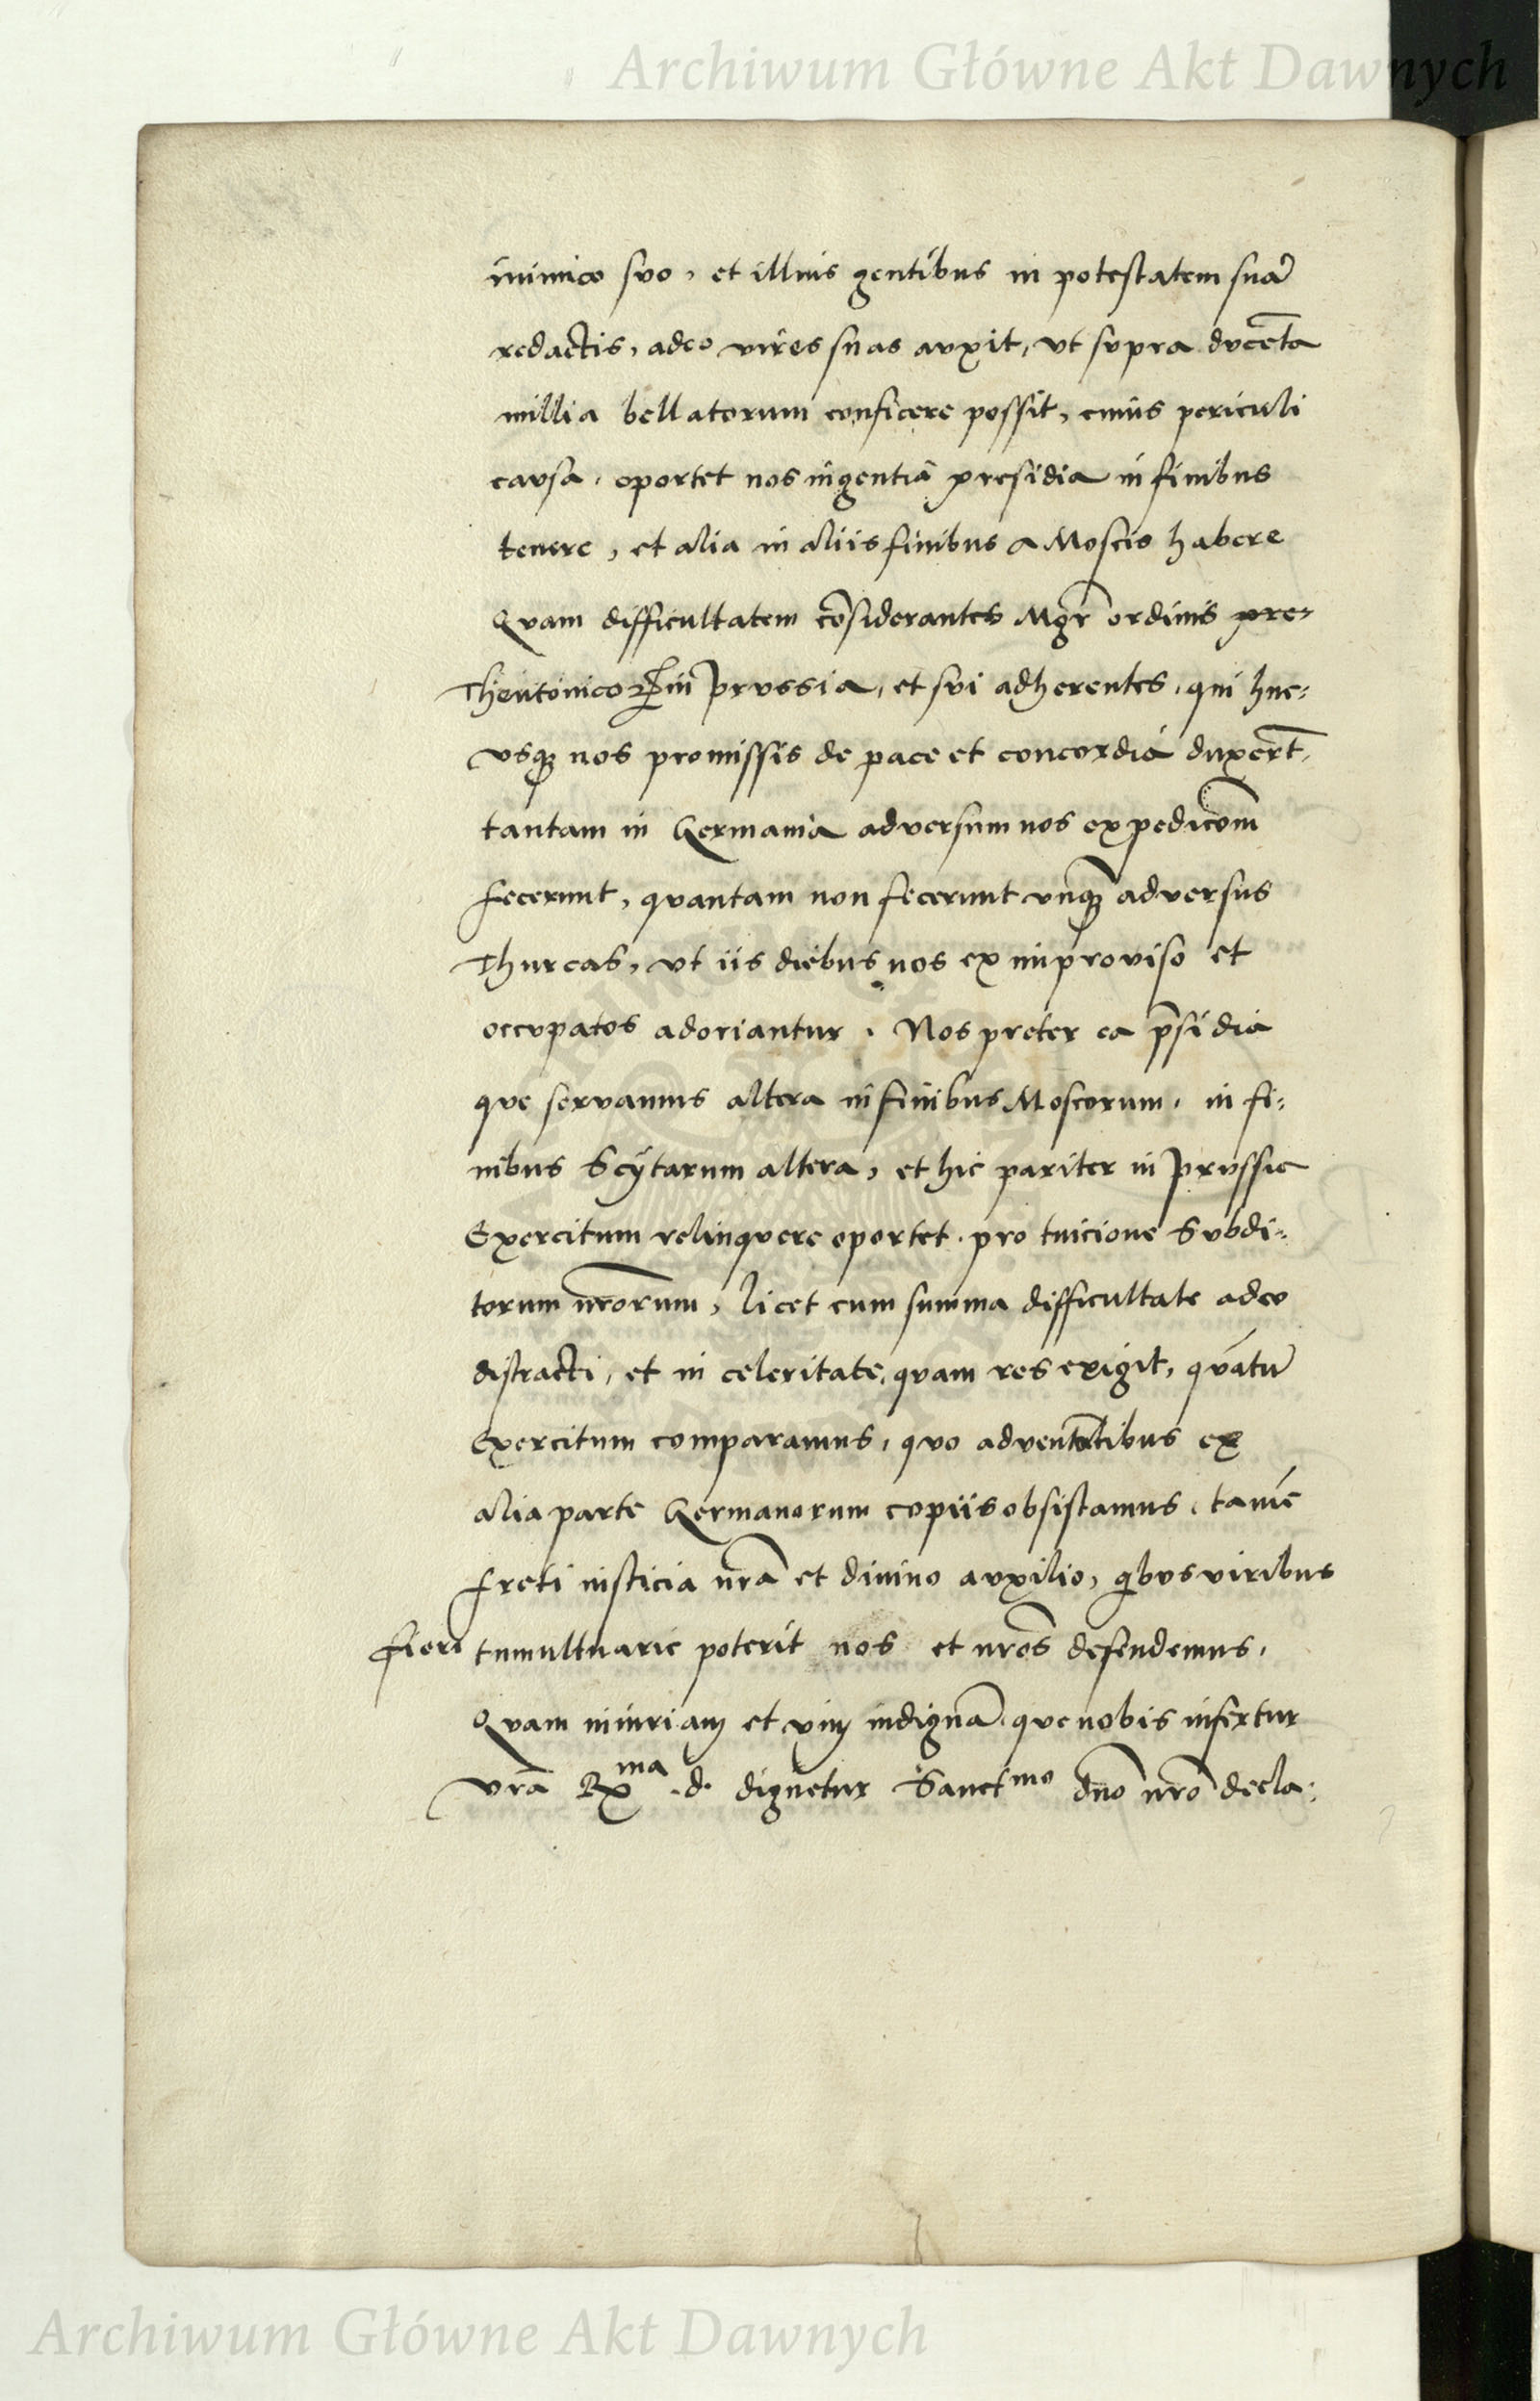 Archiwum Główne Akt Dawnych
inimico suo, et illius gentibus in potestatem suā
redactis, adeo vires suas auxit, ut supra ducēta
millia bellatorum conficere possit, cuius periculi
causa, oportet nos ingentia presidia in finibus
tenere, et alia in aliis finibus a Moscis habere
Quam difficultatem cōsiderantes Mgr̄ ordinis pre-
Theutonicoꝝ in prussia, et sui adherentes, qui huc-
usqꝫ nos promissis de pace et concordia duxerūt,
tantam in Germania adversum nos expedicōm
fecerunt, quantam non fecerunt unqꝫ adversus
Thurcas, ut iis diebus nos ex improviso et
occupatos adoriantur. Nos preter ea p̄sidia
que servamus altera in finibus Moscorum, in fi-
nibus Scÿtarum altera, et hic pariter in prussie
Exercitum relinquere oportet, pro tuicione Subdi-
torum nr̄orum, licet cum summa difficultate adeo
distracti, et in celeritate, quam res exigit, quātū
Exercitum comparamus, quo adventātibus ex
alia parte Germanorum copiis obsistamus, tamē
freti iusticia nr̄a et divino auxilio, qibus viribus
fieri tumultuarie poterit nos et nr̄os defendemus,
Quam iniuriam et vim indignā que nobis infertur
vr̄a Rx^ma .d. dignetur Sanct^mo dn̄o nr̄o decla-
Archiwum Główne Akt Dawnych